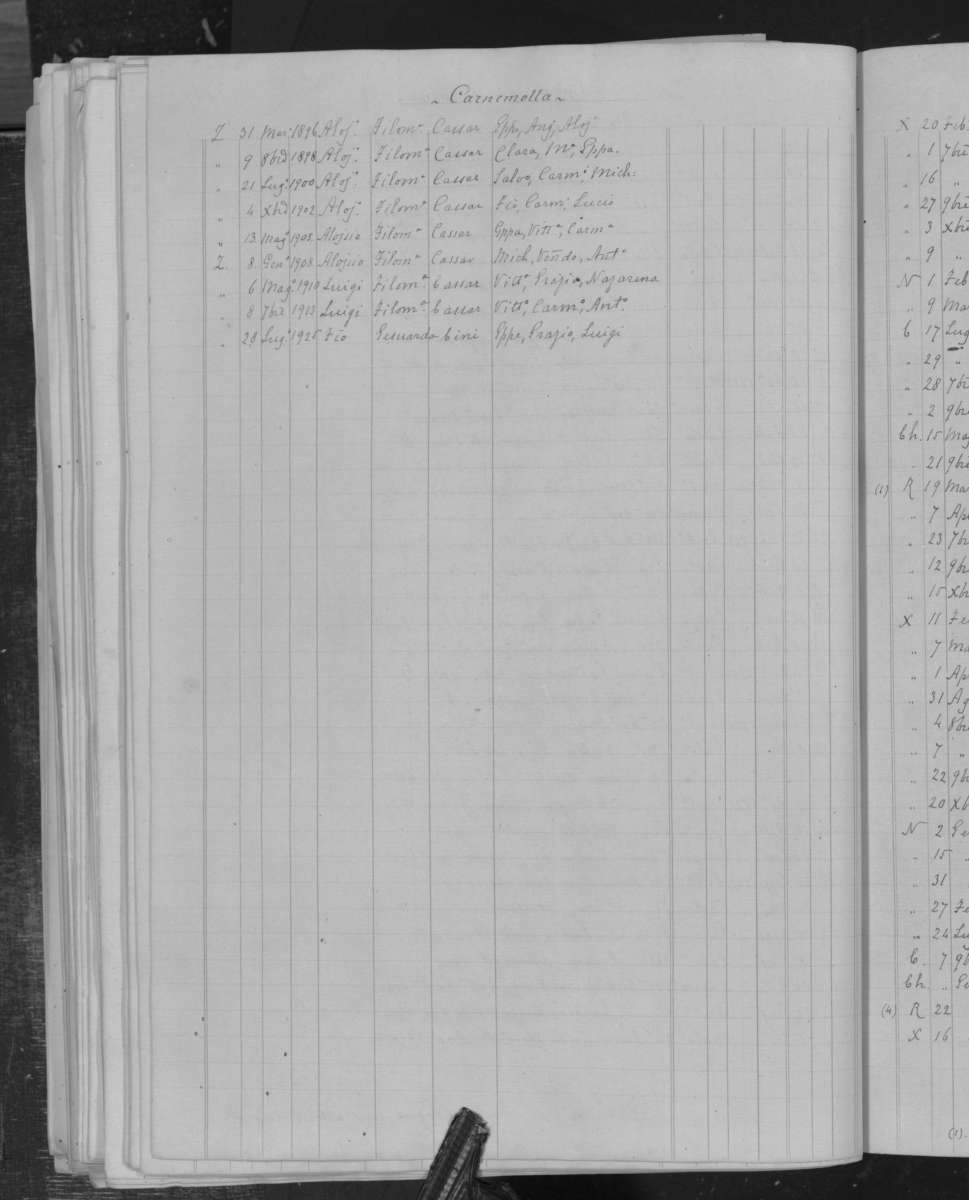 ~ Carnemolla ~
Z 31 Mar. 1896 Aloj. Filom.a Cassar Eppa, Ang, Aloj
„ 9 8bre 1898 Aloj. Filom.a Cassar Clara, M.a, Eppa.
„ 21 Lug. 1900 Aloj. Filom.a Cassar Salvo, Carm.a, Mich:
„ 4 Xbre 1902 Aloj. Filom.a Cassar Fco, Carm, Lucio
„ 13 Mag. 1905 Aloisio Filom.a Cassar Eppa, Vitt.a, Carm.a
Z. 8 Gen. 1908 Aloisio Filom.a Cassar Mich, Ant.o
„ 6 Mag. 1910 Luigi Filom.a Cassar Vitt.a, Grazia, Nazarena
„ 8 7bre 1913 Luigi Filom.a Cassar Vitt.o, Carm.o, Ant.o
„ 28 Lug. 1925 Fco Gesuarda Cini Eppe, Grazio, Luigi
X 20 Feb.
„ 1 7bre
„ 16 „
„ 27 9bre
„ 3 Xbre
„ 9 „
N 1 Feb
„ 9 Ma
C 17 Lug
„ 29 „
„ 28 7br
„ 2 9br
Ch. 15 Mag
„ 21 9bre
(1) R 19 Mar
„ 7 Apr
„ 23 7br
„ 12 9br
„ 15 Xbr
X 11 Fe
„ 7 Ma
„ 1 Ap
„ 31 Ag
„ 4 8br
„ 7 „
„ 22 9b
„ 20 Xb
N 2 Ge
„ 15 „
„ 31
„ 27 Fe
„ 24 Lu
C. 7 9b
Ch. „ Ge
(4) R 22
X 16
(1).